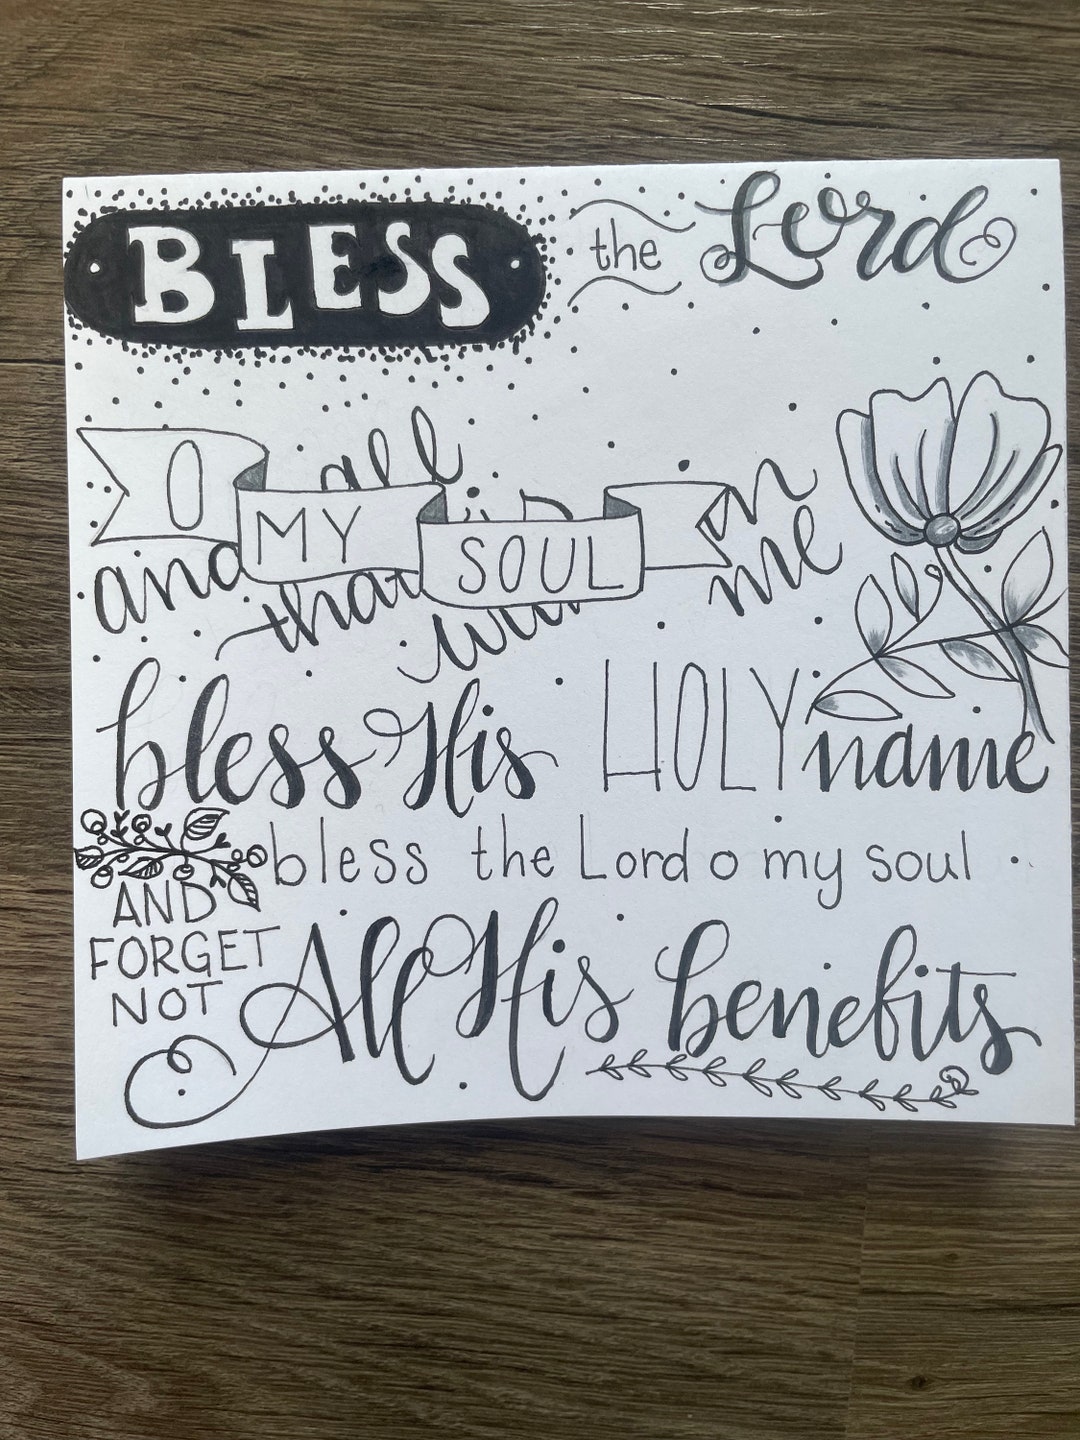 BLESS the Lord
O MY SOUL
and all that me
bless His HOLY name
bless the Lord o my soul
AND
FORGET
NOT
All His benefits